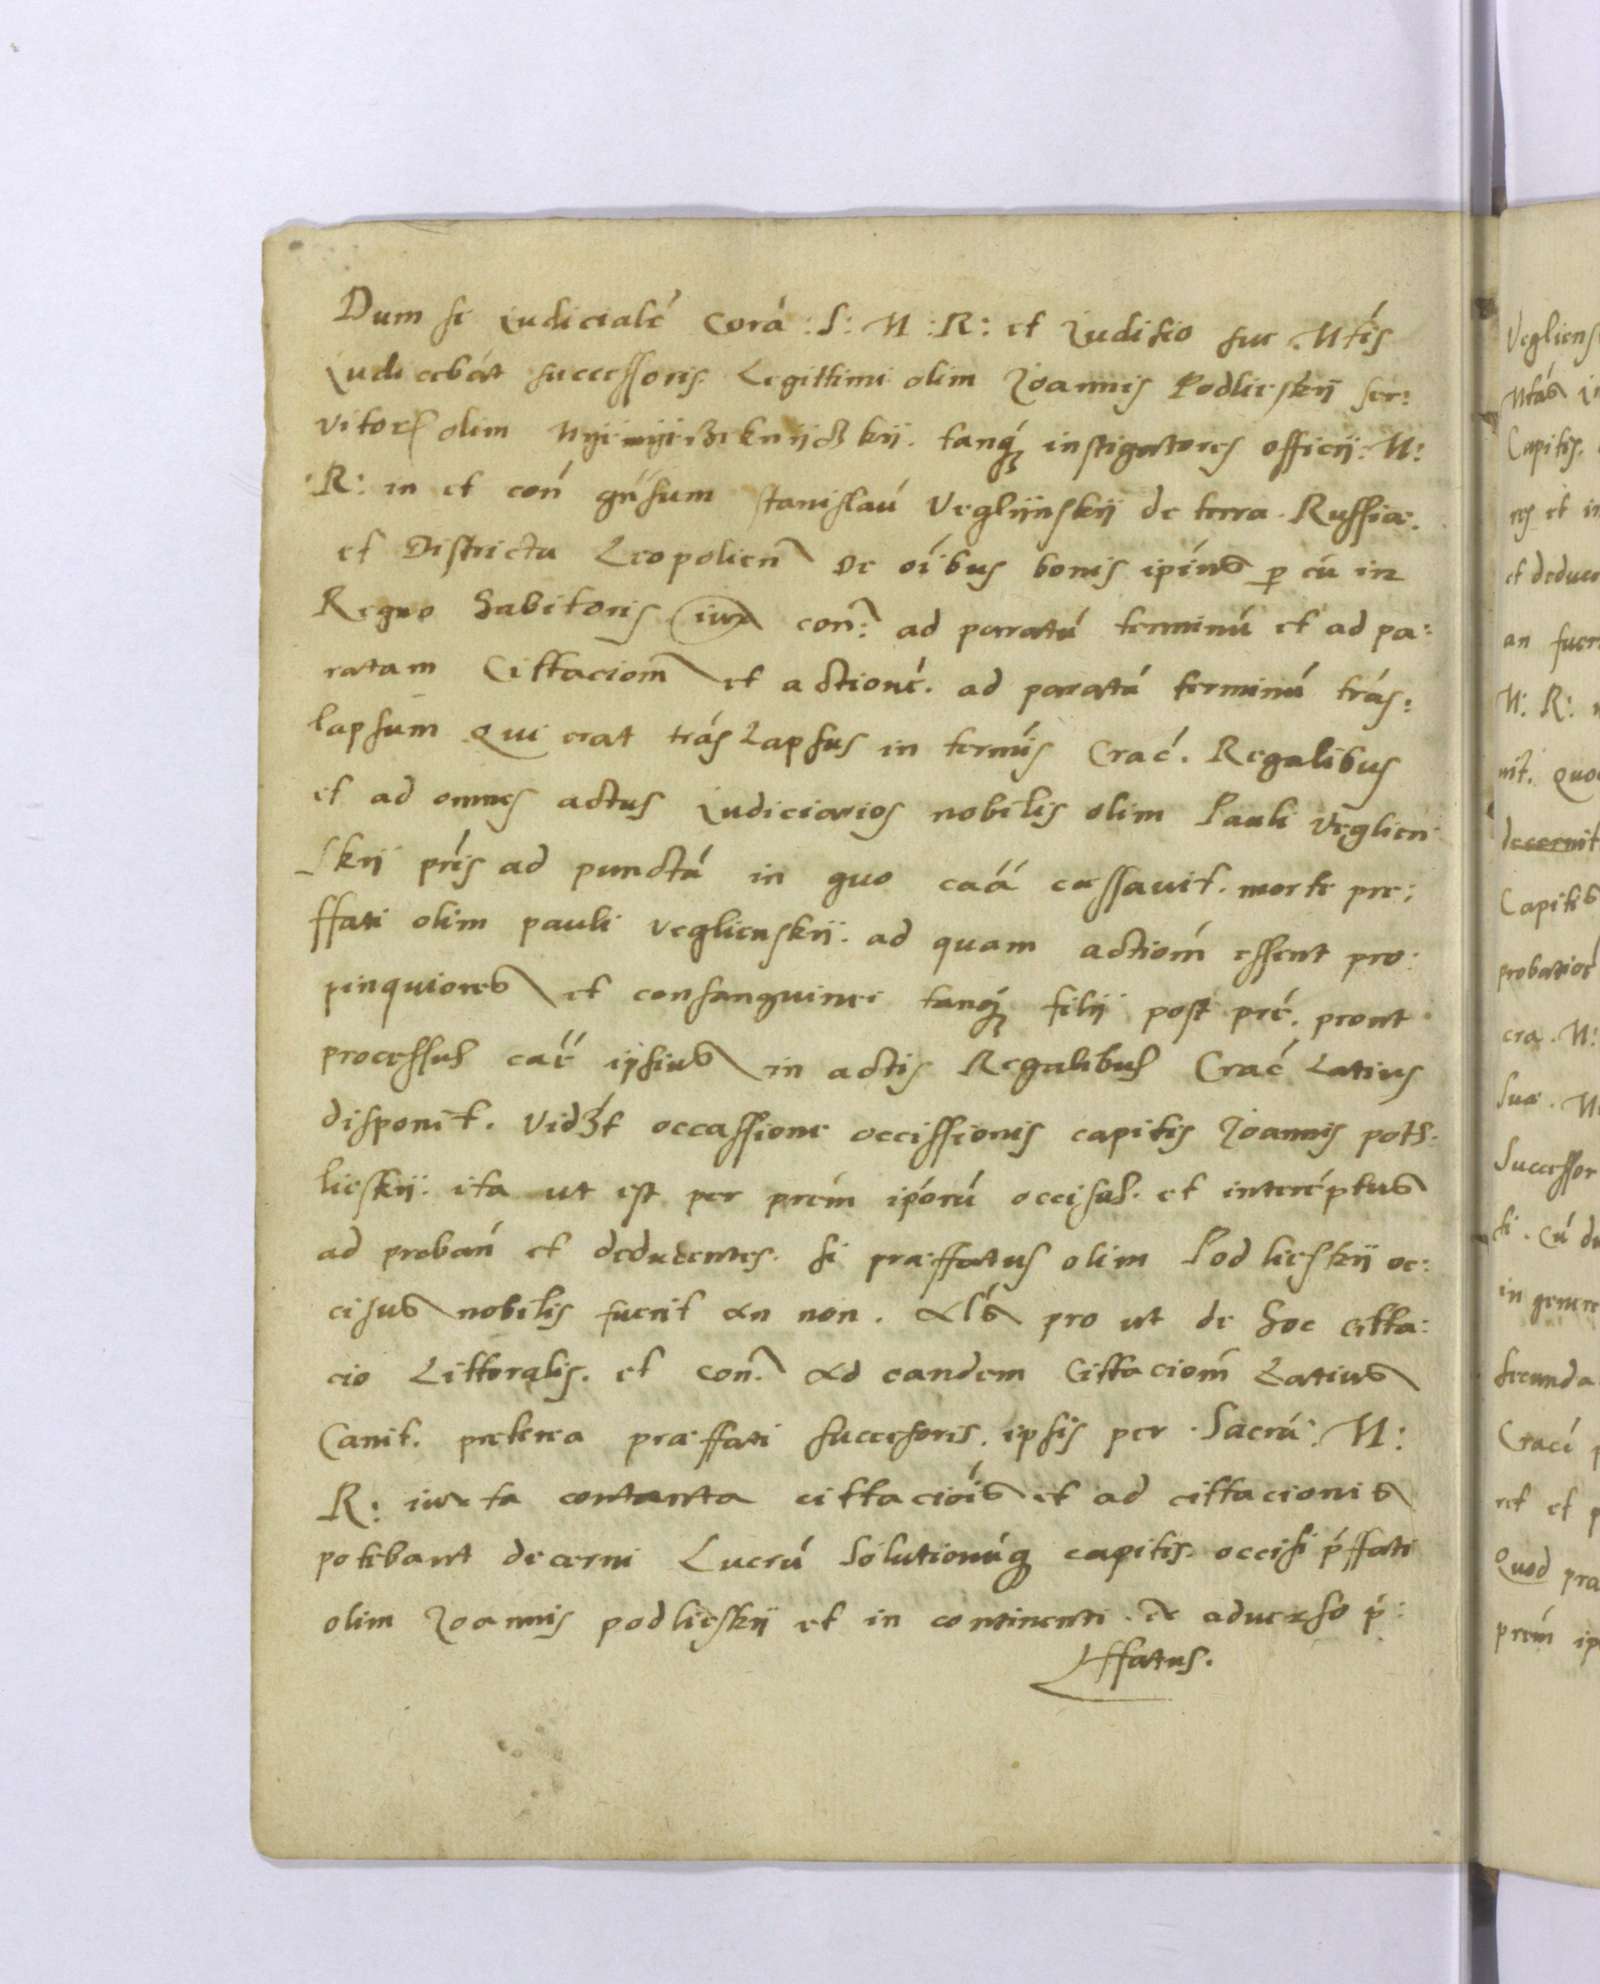 Dum se Iudicialé Corá : S : M : R : et Iudisio sue Mtis
Iudicebát successoris Legittimi olim Ioannis Podlieskÿ ser:
vitoris olim tanq instigatores officÿ : M :
R : in et con gnsum stanislaú Veglÿnskÿ de terra Russiae.
et Districtu Leopolien De oibus bonis ipius p eú in
Regno habitoris con: ad paratú terminú et ad pa:
ratam Cittaciom et actioné. ad paratú terminú trás:
lapsum Qui erat trás Lapsus in termis Crac. Regalibus
et ad omnes actus Iudiciarios nobilis olim Pauli Veglien
skÿ pris ad punctú in quo caá cessauit. morte pre:
ffati olim pauli Veglienskÿ. ad quam actiom essent pro:
pinquiores et consanguinei tanq filÿ post pré. prout
processus caé ipsius in actis Regalibus Crac Latius
disponit. Vidzt occassione occissionis capitis Ioannis pots:
lieskÿ. ita ut est per prém ipórú occisus. et interéptus
ad probań et deducentes. si praeffatus olim Podlieskÿ oc:
cisus nobilis fuerit an non. Als pro ut de hoc citta:
cio Littoralis. et con. Ad eandem Cittaciom Latius
Canit. preterea praeffati succesoris. ipsis per Sacrá. M :
R : iuxta contenta cittaciois et ad cittacionis
potebant decerni Lucrú Solutionúq capitis. occisi pffati
olim Ioannis podlieskÿ et in continenti. ex aduerso p:
ffatus.
Vegliens
Mtás
Capitis.
et in
et deduc
an fuer
M : R :
nit. quo
decernit
Capitis
probatioé
cra. M :
Suae. M
Successor
si. Cú du
in genere
secunda
Craci p
ret et p
Quod pra
prém ip